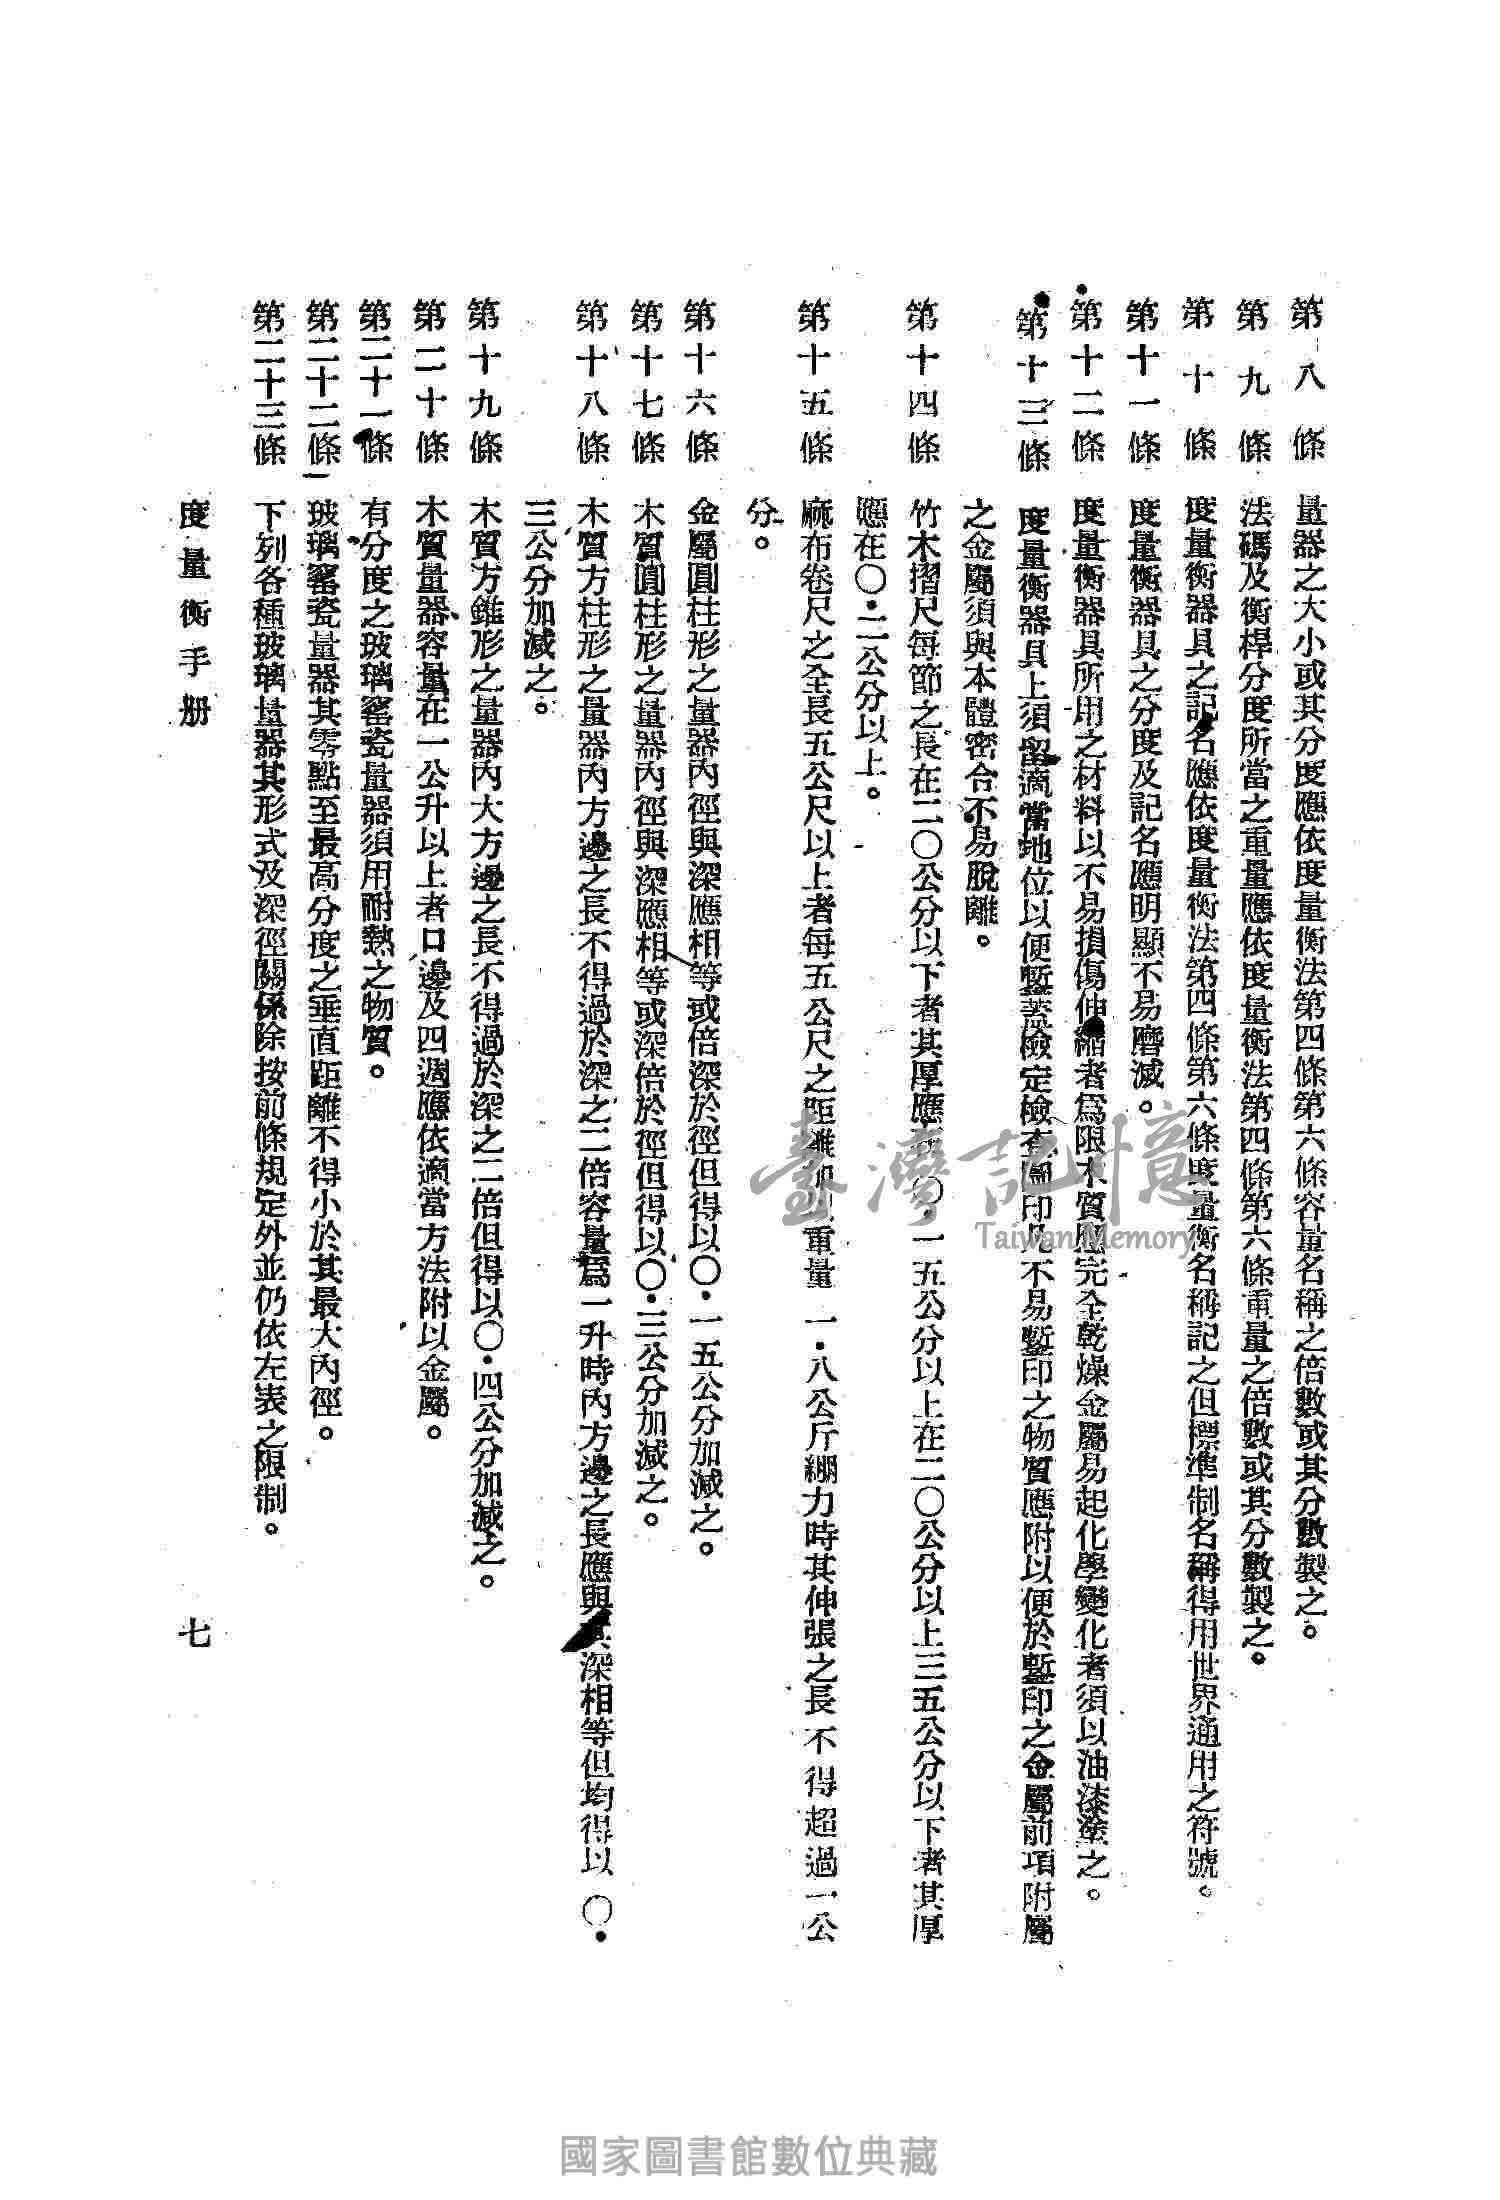 第八條 量器之大小或其分度應依度量衡法第四條第六條容量名稱之倍數或其分數製之。
第九條 法碼及衡桿分度所當之重量應依度量衡法第四條第六條重量之倍數或其分數製之。
第十條 度量衡器具之記名應依度量衡法第四條第六條度量衡名稱記之但標準制名稱得用世界通用之符號。
第十一條 度量衡器具之分度及記名應明顯不易磨滅。
第十二條 度量衡器具所用之材料以不易損傷伸縮者爲限木質應完全乾燥金屬易起化學變化者須以油漆塗之。
第十三條 度量衡器具上須留適當地位以便鏨蓋檢定檢查圖印凡不易鏨印之物質應附以便於鏨印之金屬前項附屬
之金屬須與本體密合不易脫離。
第十四條 竹木摺尺每節之長在二〇公分以下者其厚應在〇·一五公分以上在二〇公分以上三五公分以下者其厚
應在〇·二公分以上。
第十五條 麻布卷尺之全長五公尺以上者每五公尺之距離加以重量一·八公斤綳力時其伸張之長不得超過一公
分。
第十六條 金屬圓柱形之量器內徑與深應相等或倍深於徑但得以〇·一五公分加減之。
第十七條 木質圓柱形之量器內徑與深應相等或深倍於徑但得以〇·三公分加減之。
第十八條 木質方柱形之量器內方邊之長不得過於深之二倍容量爲一升時內方邊之長應與其深相等但均得以〇·
三公分加減之。
第十九條 木質方錐形之量器內大方邊之長不得過於深之二倍但得以〇·四公分加減之。
第二十條 木質量器容量在一公升以上者口邊及四週應依適當方法附以金屬。
第二十一條 有分度之玻璃窰瓷量器須用耐熱之物質。
第二十二條 玻璃窰瓷量器其零點至最高分度之垂直距離不得小於其最大內徑。
第二十三條 下列各種玻璃量器其形式及深徑關係除按前條規定外並仍依左表之限制。
度量衡手册
七
臺灣記憶
Taiwan Memory
國家圖書館數位典藏